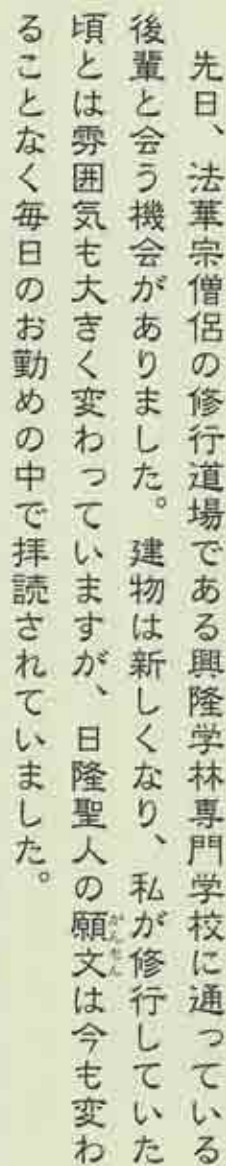 先日、法華宗僧侶の修行道場である興隆学林専門学校に通っている
後輩と会う機会がありました。建物は新しくなり、私が修行していた
頃とは雰囲気も大きく変わっていますが、日隆聖人の願文は今も変わ
ることなく毎日のお勤めの中で拝読されていました。